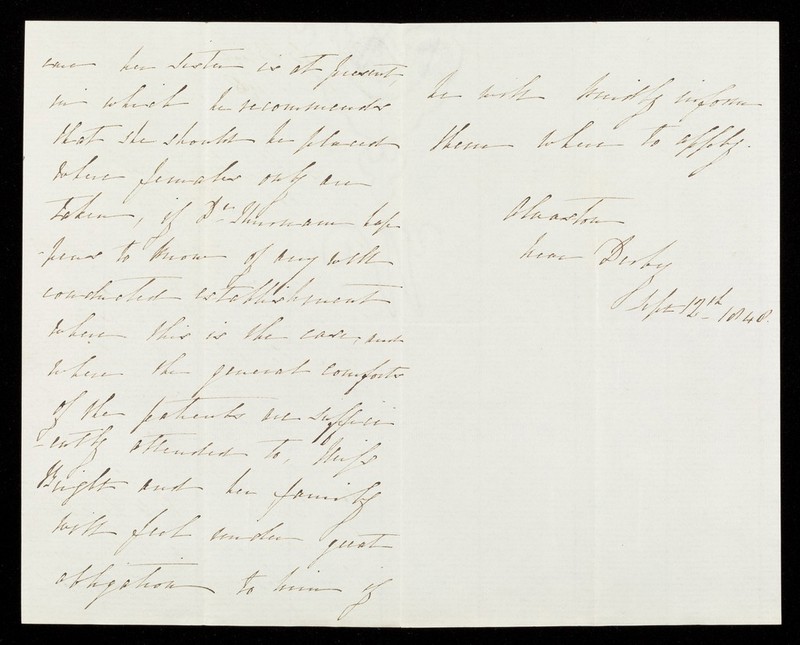 care her sister is at present,
in which he recommends
that she should be placed
where females only are
taken, if Dr. Thurnam hap
-pens to know of any well
conducted establishment
where this is the case, and
where the general comforts
of the patients are suffici
-ently attended to, Miss
Bright and her family
will feel under great
obligation to him if
he will kindly inform
them where to apply.
Alvaston
near Derby
Sept 12th 1848.